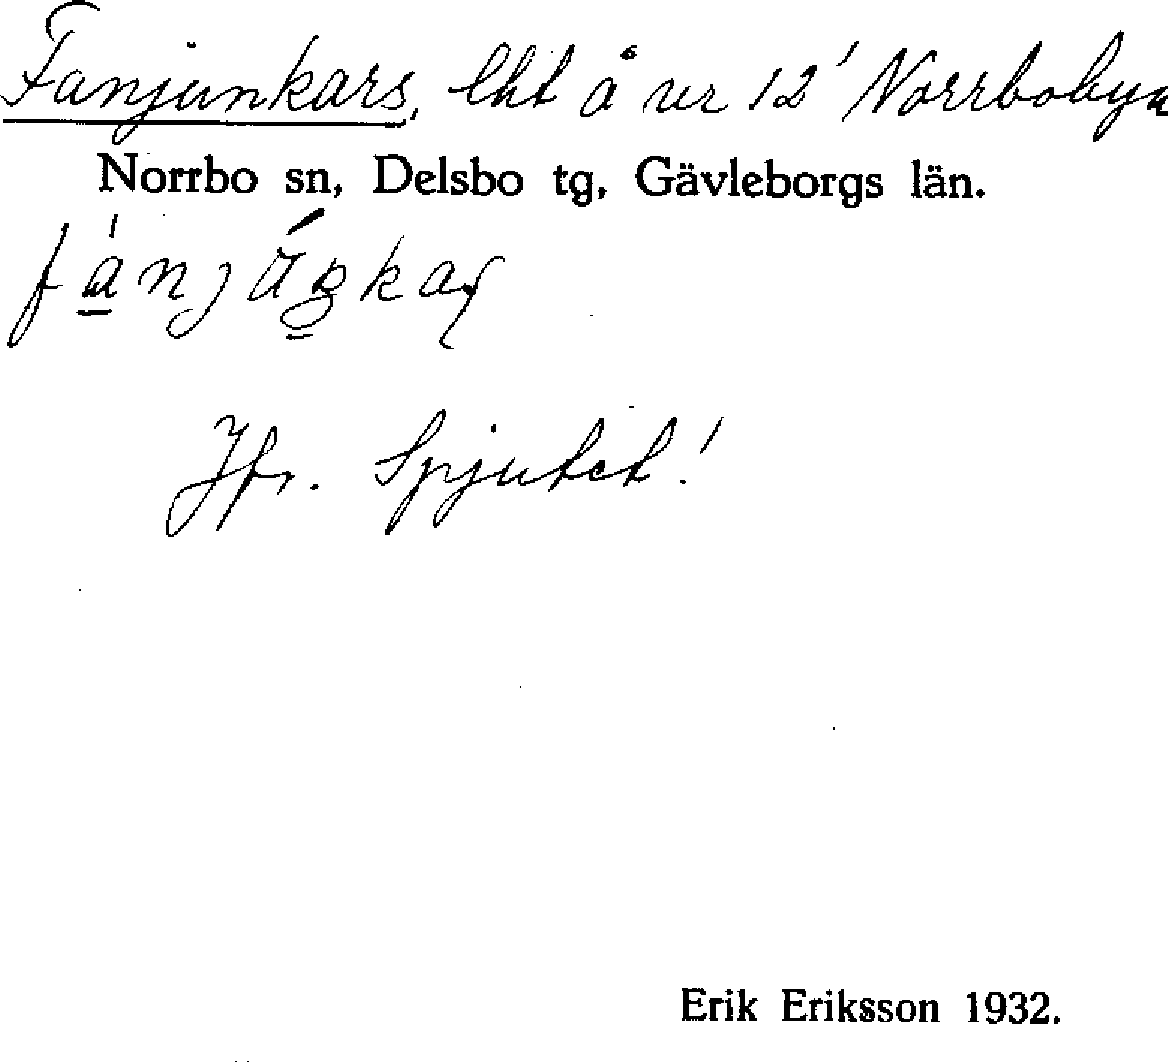 Fanjunkars, lht å nr 12' Norrbobyn
Norrbo sn, Delsbo tg, Gävleborgs län.
Jfr. Spjutet!
Erik Eriksson 1932.